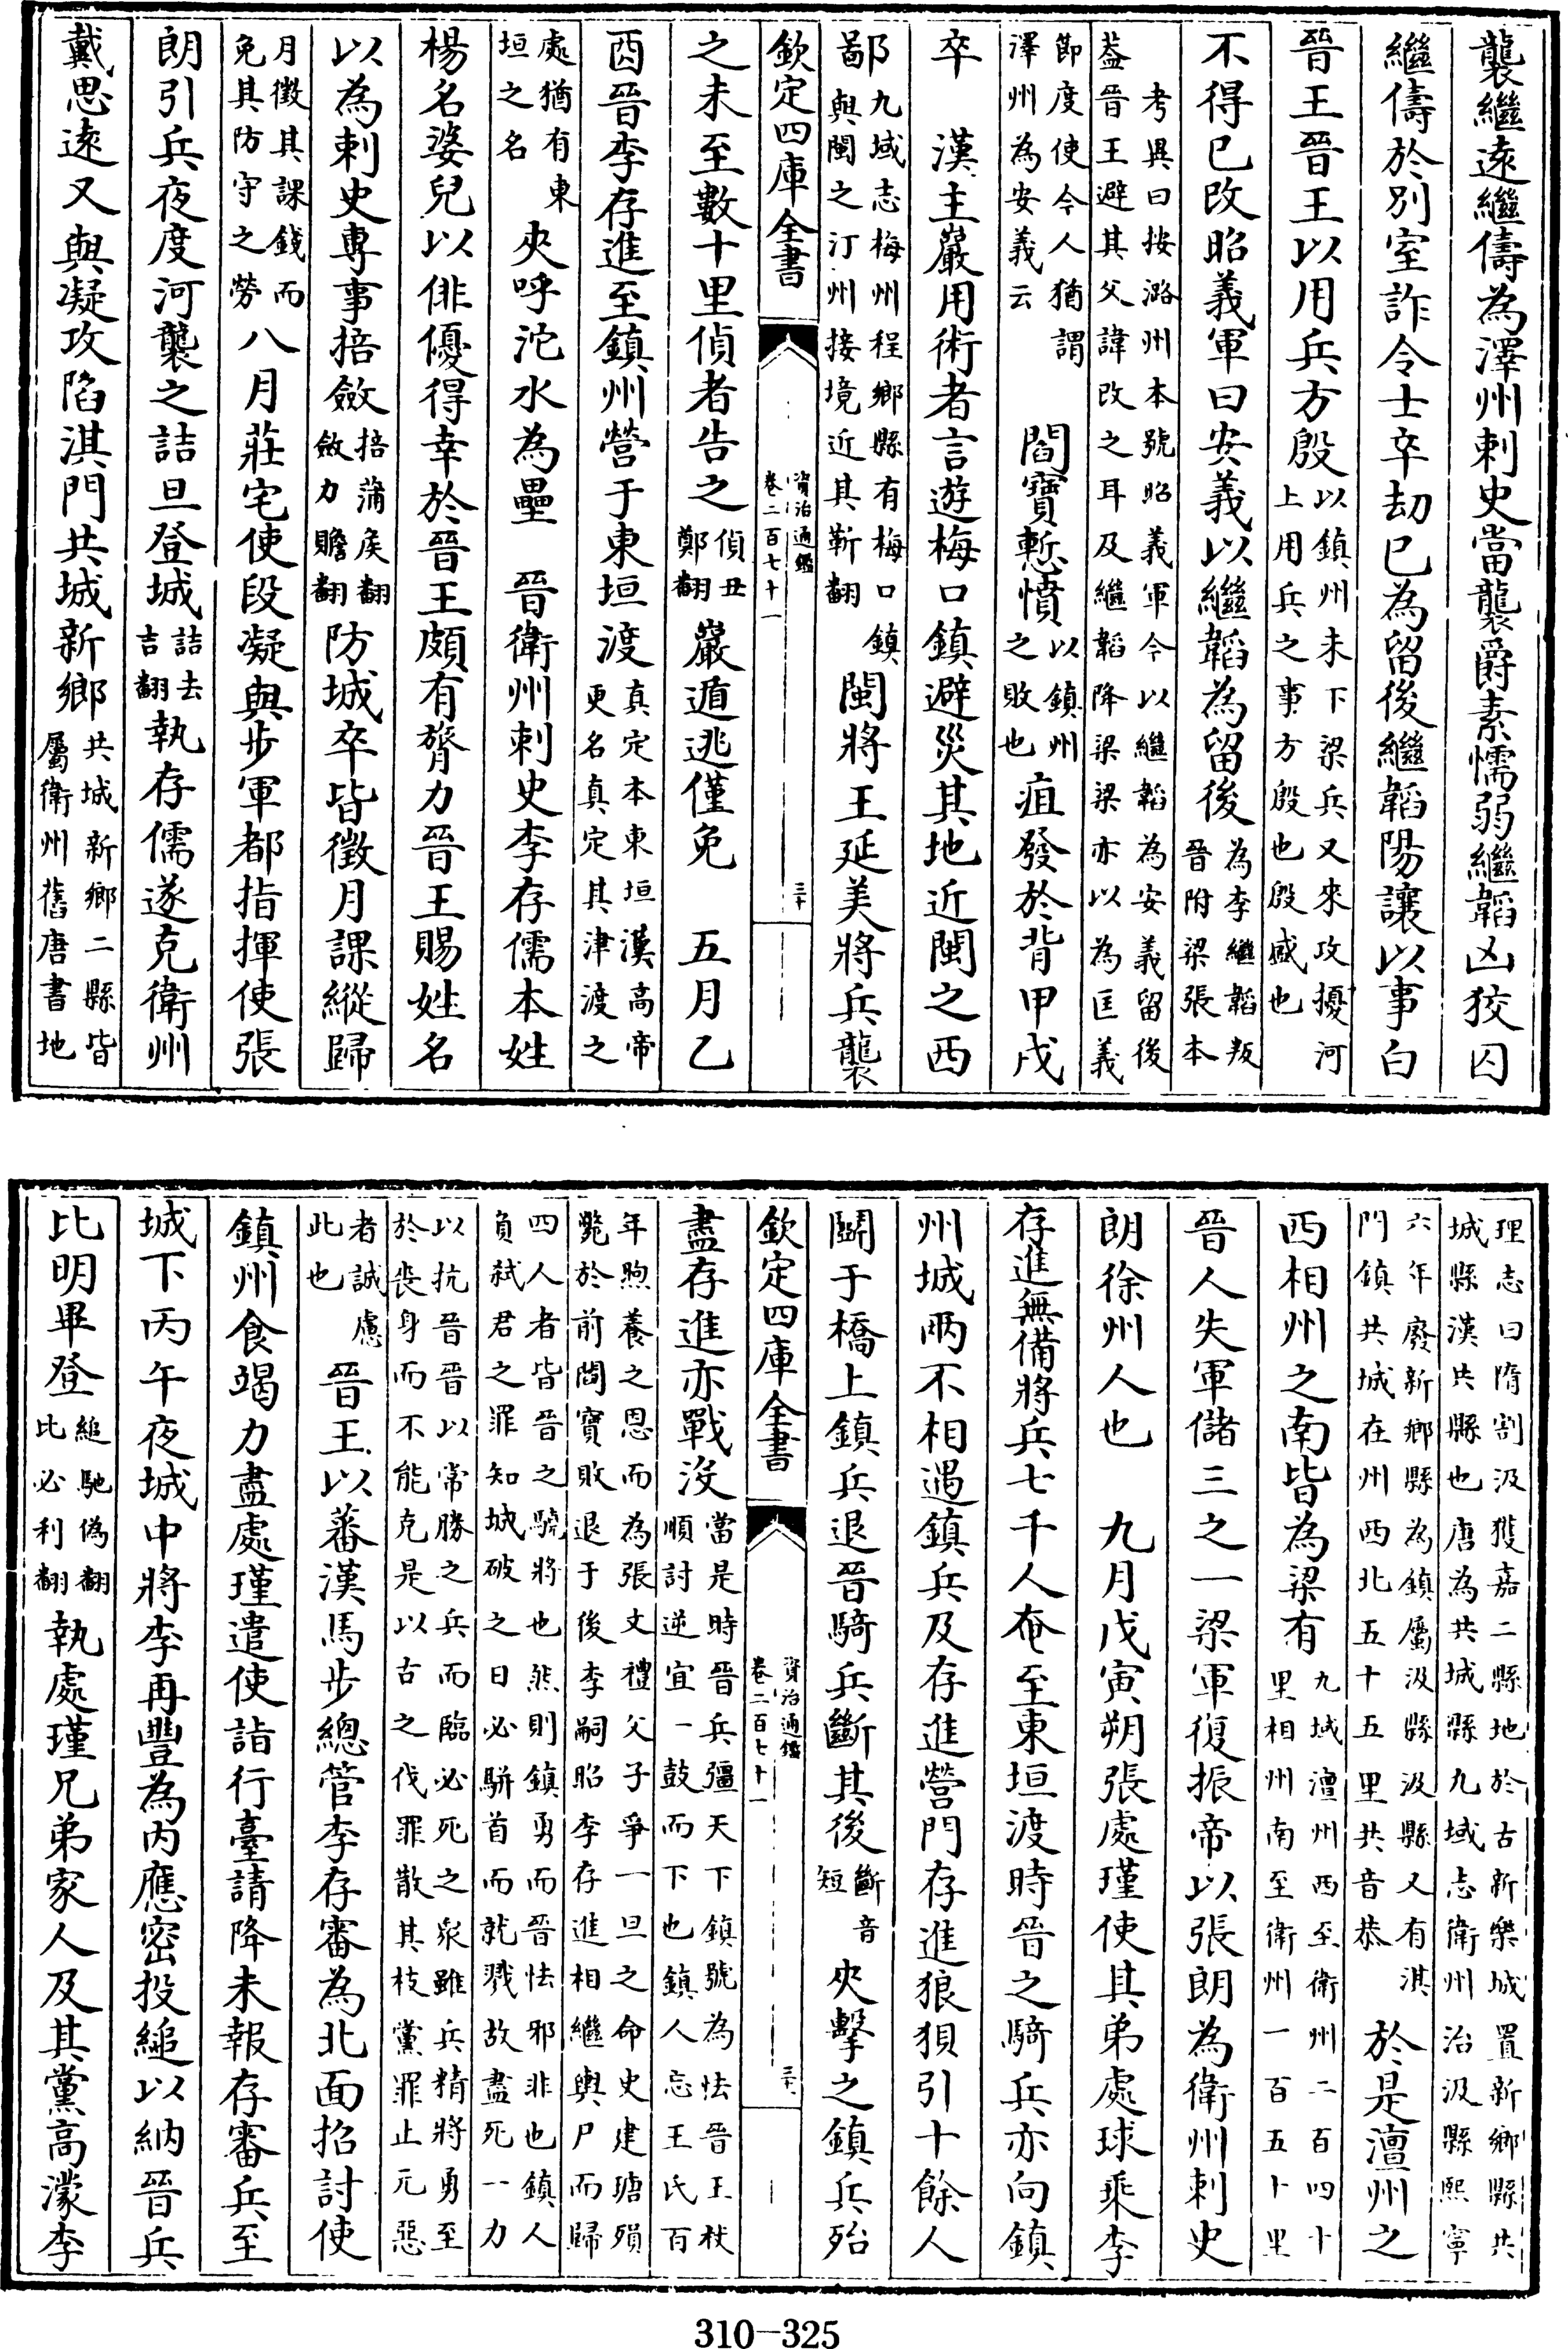 襲繼遠繼儔為澤州刺史當襲爵素懦弱繼韜凶狡囚
繼儔於別室詐令士卒刼已為留後繼韜陽讓以事白
晉王晉王以用兵方殷以鎮州未下梁兵又來攻擾河上用兵之事方殷也殷盛也
不得已改昭義軍曰安義以繼韜為留後為李繼韜叛晉附梁張本
考異曰按潞州本號昭義軍今以繼韜為安義留後葢晉王避其父諱改之耳及繼韜降梁梁亦以為匡義
節度使今人猶謂澤州為安義云　閻寶慙憤以鎮州之敗也疽發於背甲戌
卒　漢主巖用術者言遊梅口鎮避災其地近閩之西
鄙九域志梅州程鄉縣有梅口鎮與閩之汀州接境近其靳翻閩將王延美將兵襲
欽定四庫全書　資治通鑑卷二百七十一　三十
之未至數十里偵者告之偵丑鄭翻巖遁逃僅免　五月乙
酉晉李存進至鎮州營于東垣渡真定本東垣漢高帝更名真定其津渡之
處猶有東垣之名夾呼沱水為壘　晉衛州刺史李存儒本姓
楊名婆兒以俳優得幸於晉王頗有膂力晉王賜姓名
以為刺史專事掊斂掊蒲侯翻斂力贍翻防城卒皆徵月課縱歸
月徵其課錢而免其防守之勞八月莊宅使段凝與步軍都指揮使張
朗引兵夜度河襲之詰旦登城詰去吉翻執存儒遂克衛州
戴思遠又與凝攻陷淇門共城新鄉共城新鄉二縣皆屬衛州舊唐書地
理志曰隋割汲獲嘉二縣地於古新樂城置新鄉縣共城縣漢共縣也唐為共城縣九域志衛州治汲縣熙寧
六年廢新鄉縣為鎮屬汲縣汲縣又有淇門鎮共城在州西北五十五里共音恭於是澶州之
西相州之南皆為梁有九域澶州西至衛州二百四十里相州南至衛州一百五十里
晉人失軍儲三之一梁軍復振帝以張朗為衛州刺史
朗徐州人也　九月戊寅朔張處瑾使其弟處球乘李
存進無備將兵七千人奄至東垣渡時晉之騎兵亦向鎮
州城兩不相遇鎮兵及存進營門存進狼狽引十餘人
鬭于橋上鎮兵退晉騎兵斷其後斷音短夾擊之鎮兵殆
欽定四庫全書　資治通鑑卷二百七十一　三十一
盡存進亦戰沒當是時晉兵彊天下鎮號為怯晉王杖順討逆宜一鼓而下也鎮人忘王氏百
年煦養之恩而為張文禮父子爭一旦之命史建瑭殞斃於前閻寶敗退于後李嗣昭李存進相繼輿尸而歸
四人者皆晉之驍將也然則鎮勇而晉怯邪非也鎮人負弑君之罪知城破之日必駢首而就戮故盡死一力
以抗晉晉以常勝之兵而臨必死之衆雖兵精將勇至於喪身而不能克是以古之伐罪散其枝黨罪止元惡
者誠慮此也晉王以蕃漢馬步總管李存審為北面招討使
鎮州食竭力盡處瑾遣使詣行臺請降未報存審兵至
城下丙午夜城中將李再豐為內應密投縋以納晉兵
比明畢登縋馳偽翻比必利翻執處瑾兄弟家人及其黨高濛李
310-325